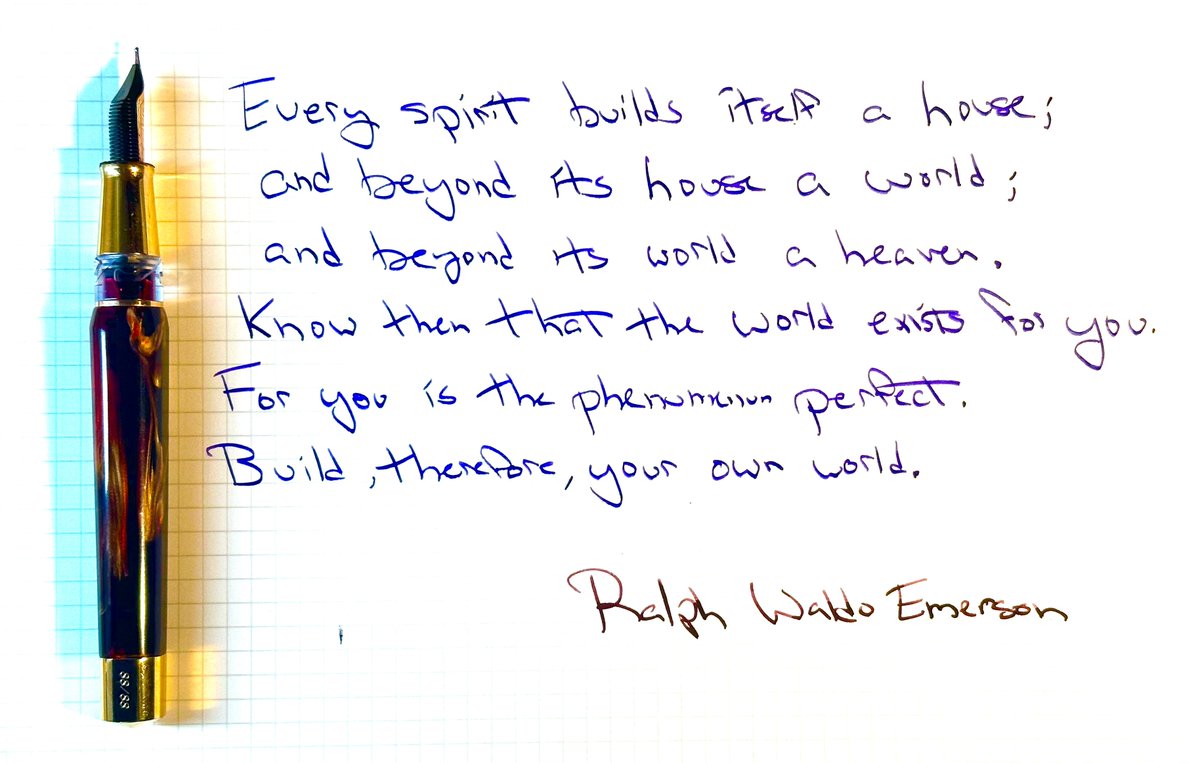 Every spirit builds itself a house;
and beyond its house a world;
and beyond its world a heaven.
Know then that the world exists for you.
For you is the phenomenon perfect.
Build, therefore, your own world.
Ralph Waldo Emerson
88/88